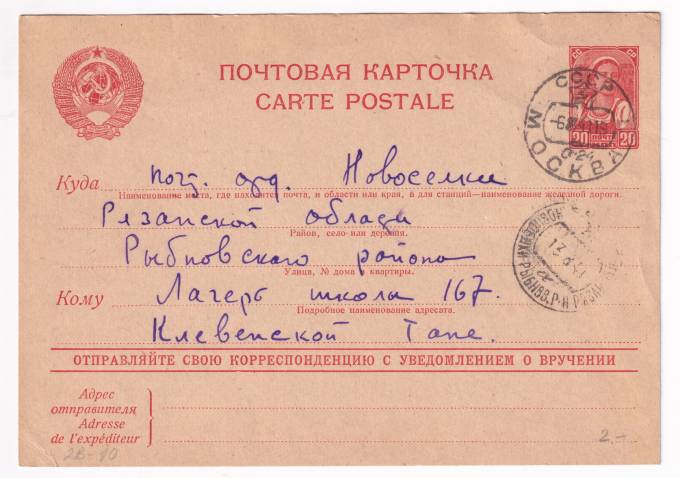 ПОЧТОВАЯ КАРТОЧКА
CARTE POSTALE
СССР
МОСКВА
20 ПОЧТА 20
Куда почт. отд. Новоселки
Наименование места, где находится почта, и области или края, а для станций—наименование железной дороги.
Рязанской области
Район, село или деревня.
Рыбновского района
Улица, № дома и квартиры.
Кому Лагерь школа 167.
Подробное наименование адресата.
Клевенской Тане.
ОТПРАВЛЯЙТЕ СВОЮ КОРРЕСПОНДЕНЦИЮ С УВЕДОМЛЕНИЕМ О ВРУЧЕНИИ
Адрес
отправителя
Adresse
de l'expéditeur
2.-